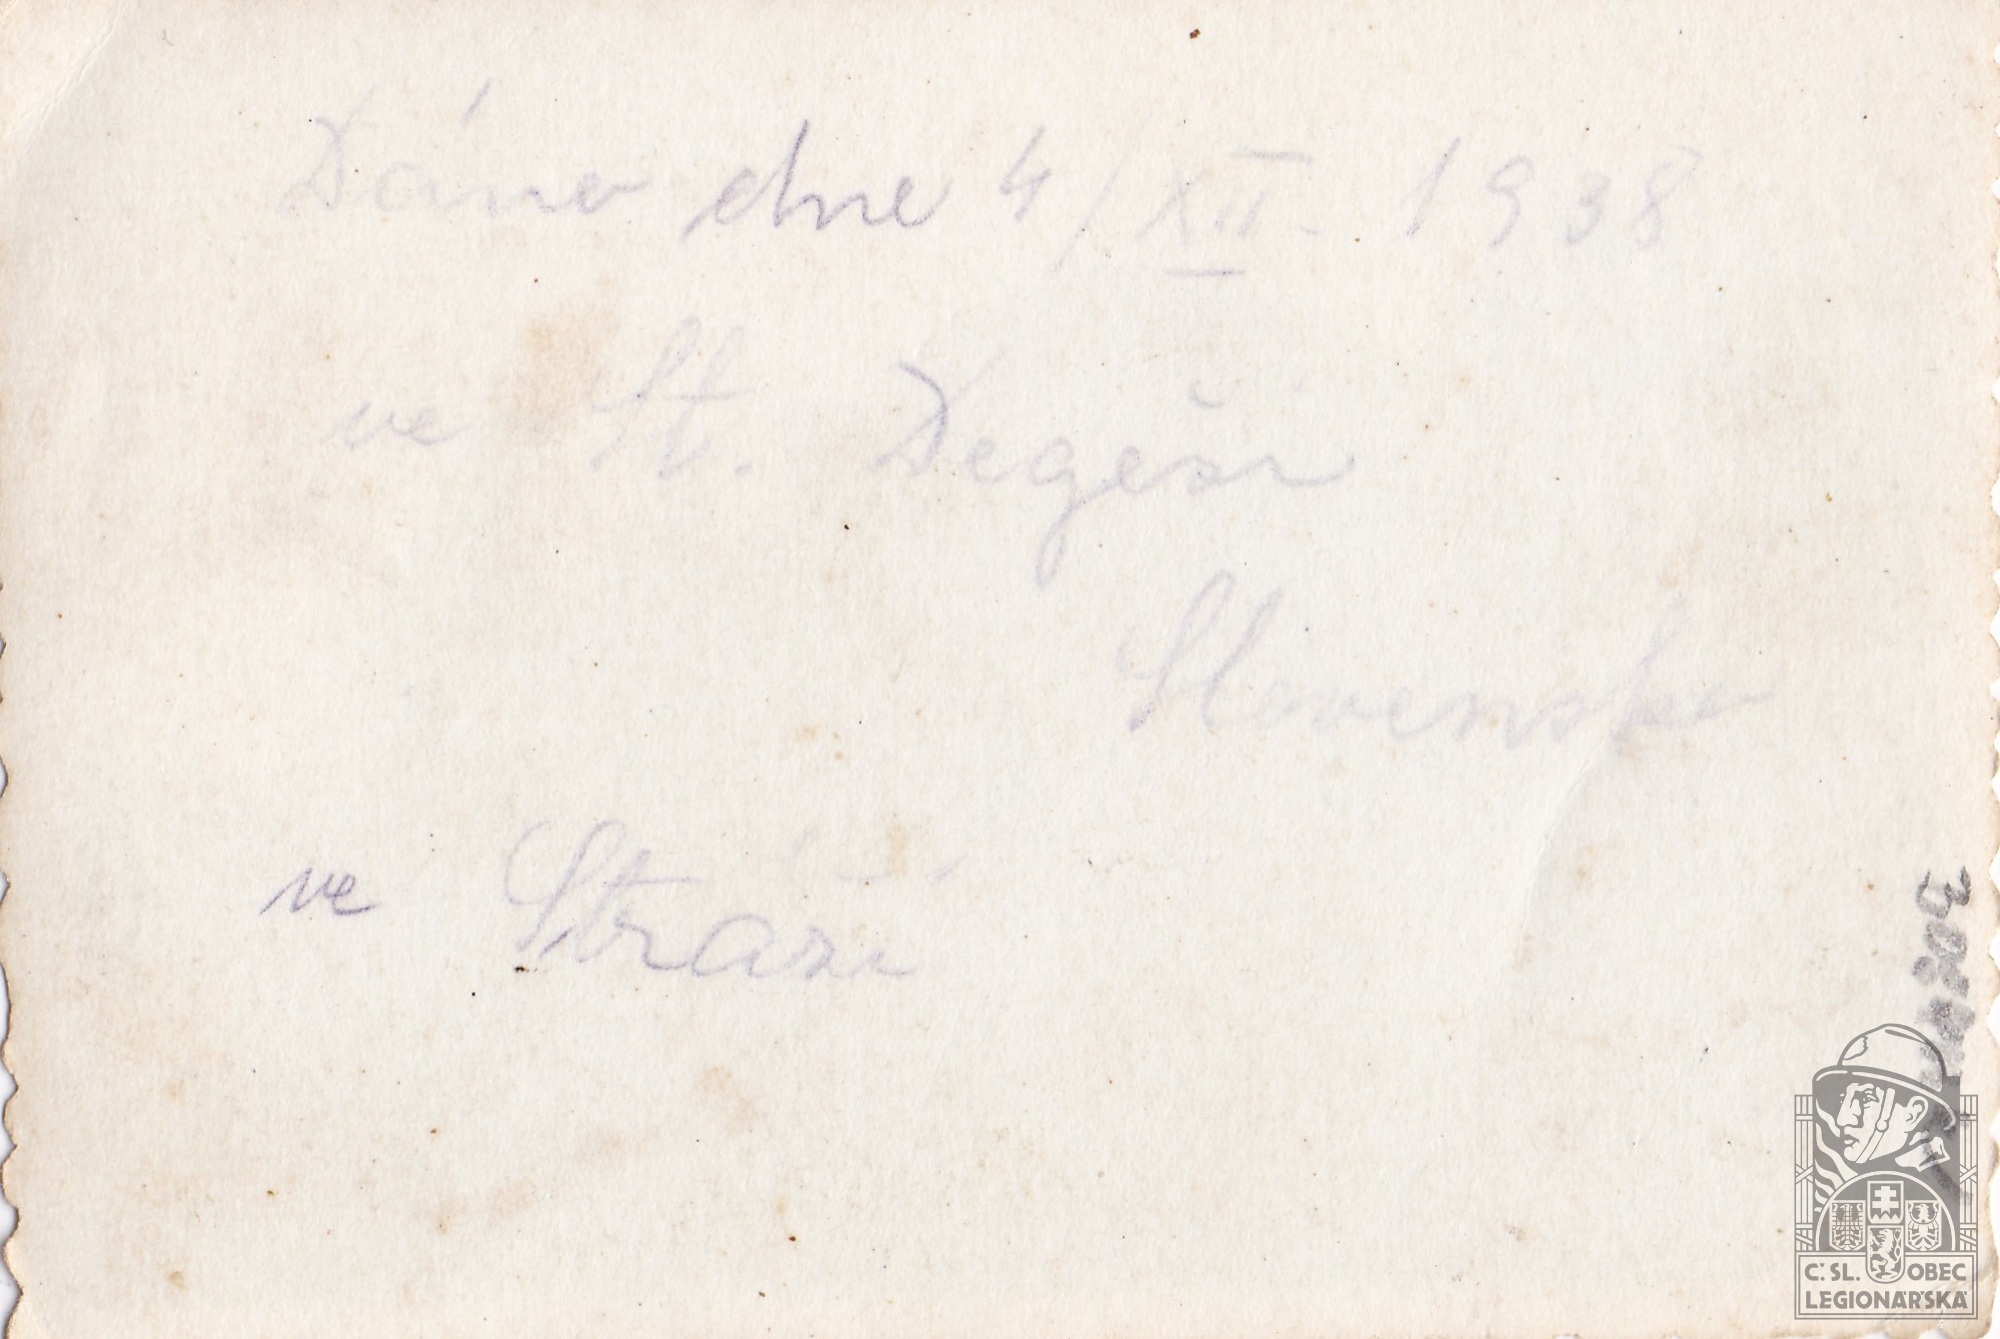 Dáno dne 4/XII. 1938
ve St. Degeši
Slovensko
ve Stráži
Č.SL. OBEC
LEGIONÁŘSKÁ